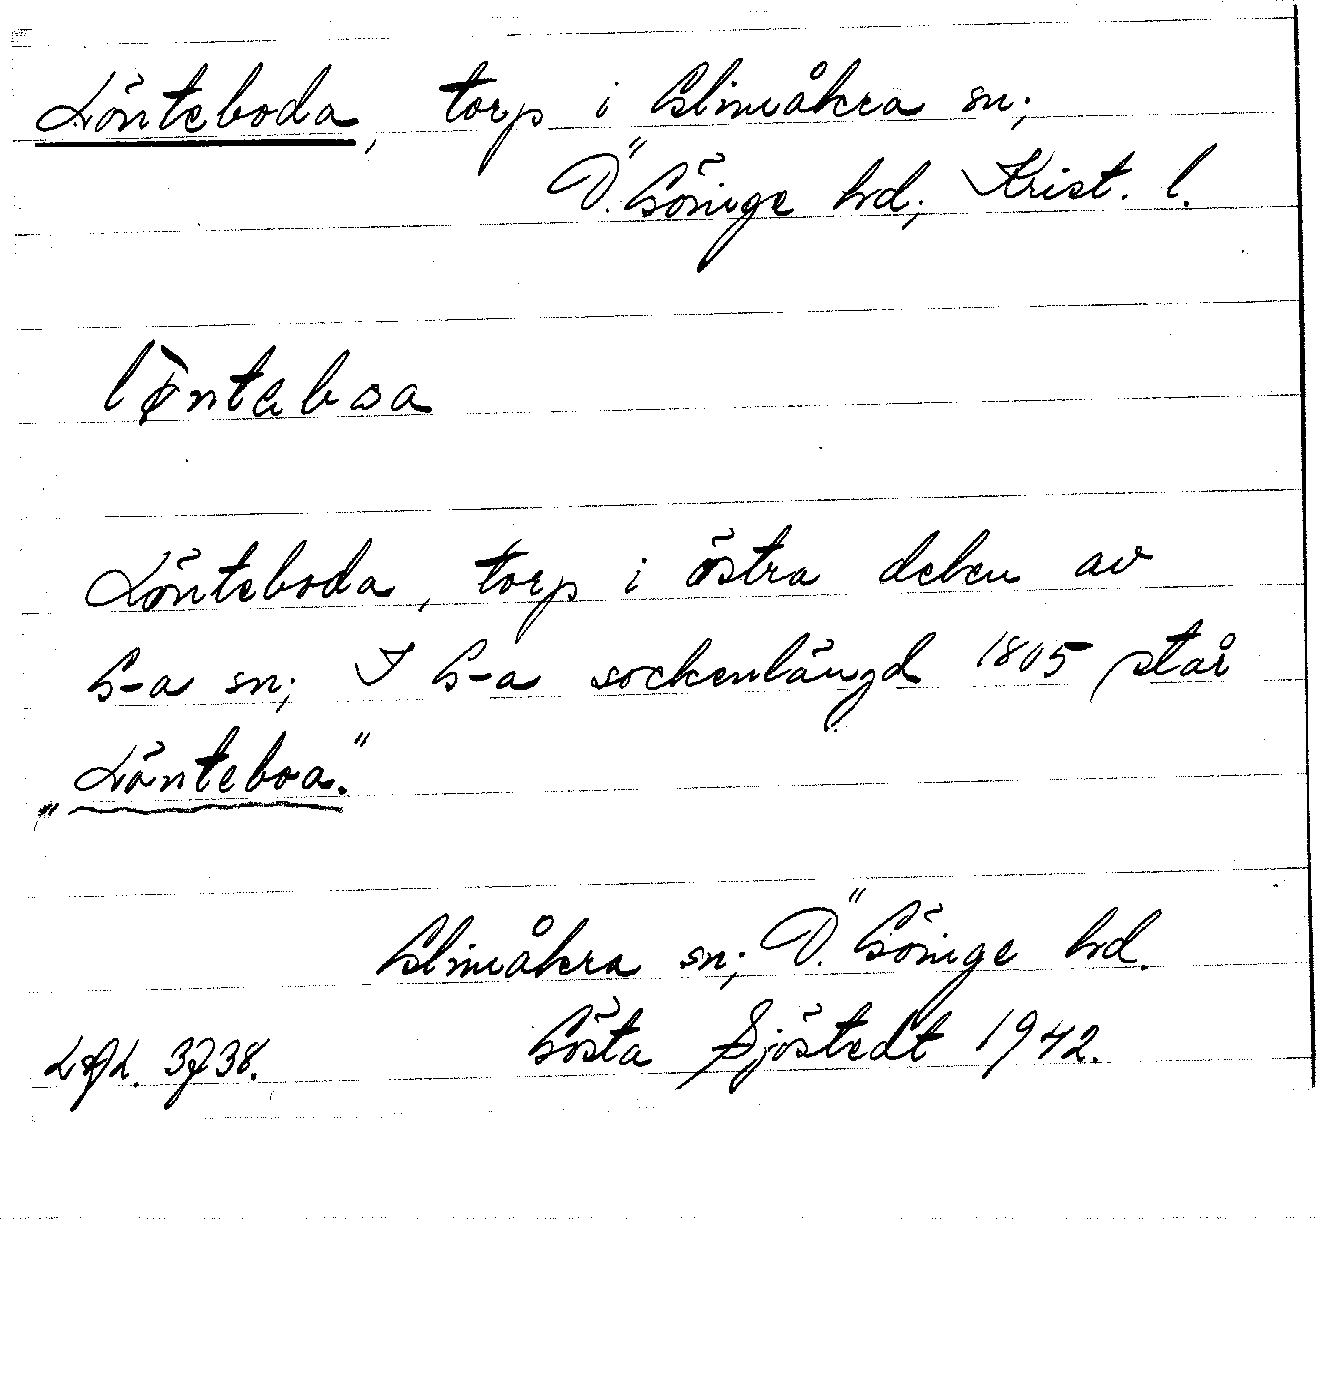 Lönteboda, torp i Glimåkra sn;
Ö. Göinge hd; Krist. l.
lønteboa
Lönteboda, torp i östra delen av
G-a sn; I G-a sockenlängd 1805 står
„Lönteboa.”
Glimåkra sn; Ö. Göinge hd.
Gösta Sjöstedt 1942.
LAL. 3738.